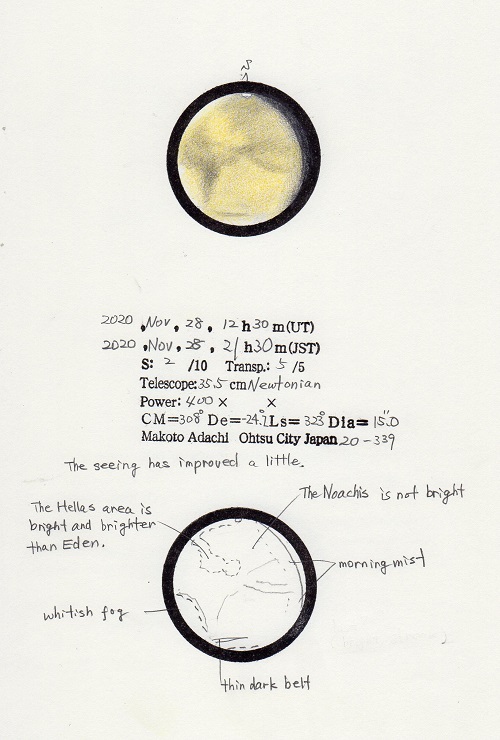 S
2020 , Nov , 28 , 12 h 30 m (UT)
2020 , Nov , 28 , 21 h 30 m (JST)
S: 2 /10 Transp.: 5 /5
Telescope: 35.5 cm Newtonian
Power: 400 × ×
CM=308° De=-24.7 Ls= 323° Dia= 15".0
Makoto Adachi Ohtsu City Japan 20-339
The seeing has improved a little.
The Noachis is not bright
The Hellas area is
bright and brighter
than Eden.
morning mist
whitish fog
thin dark belt